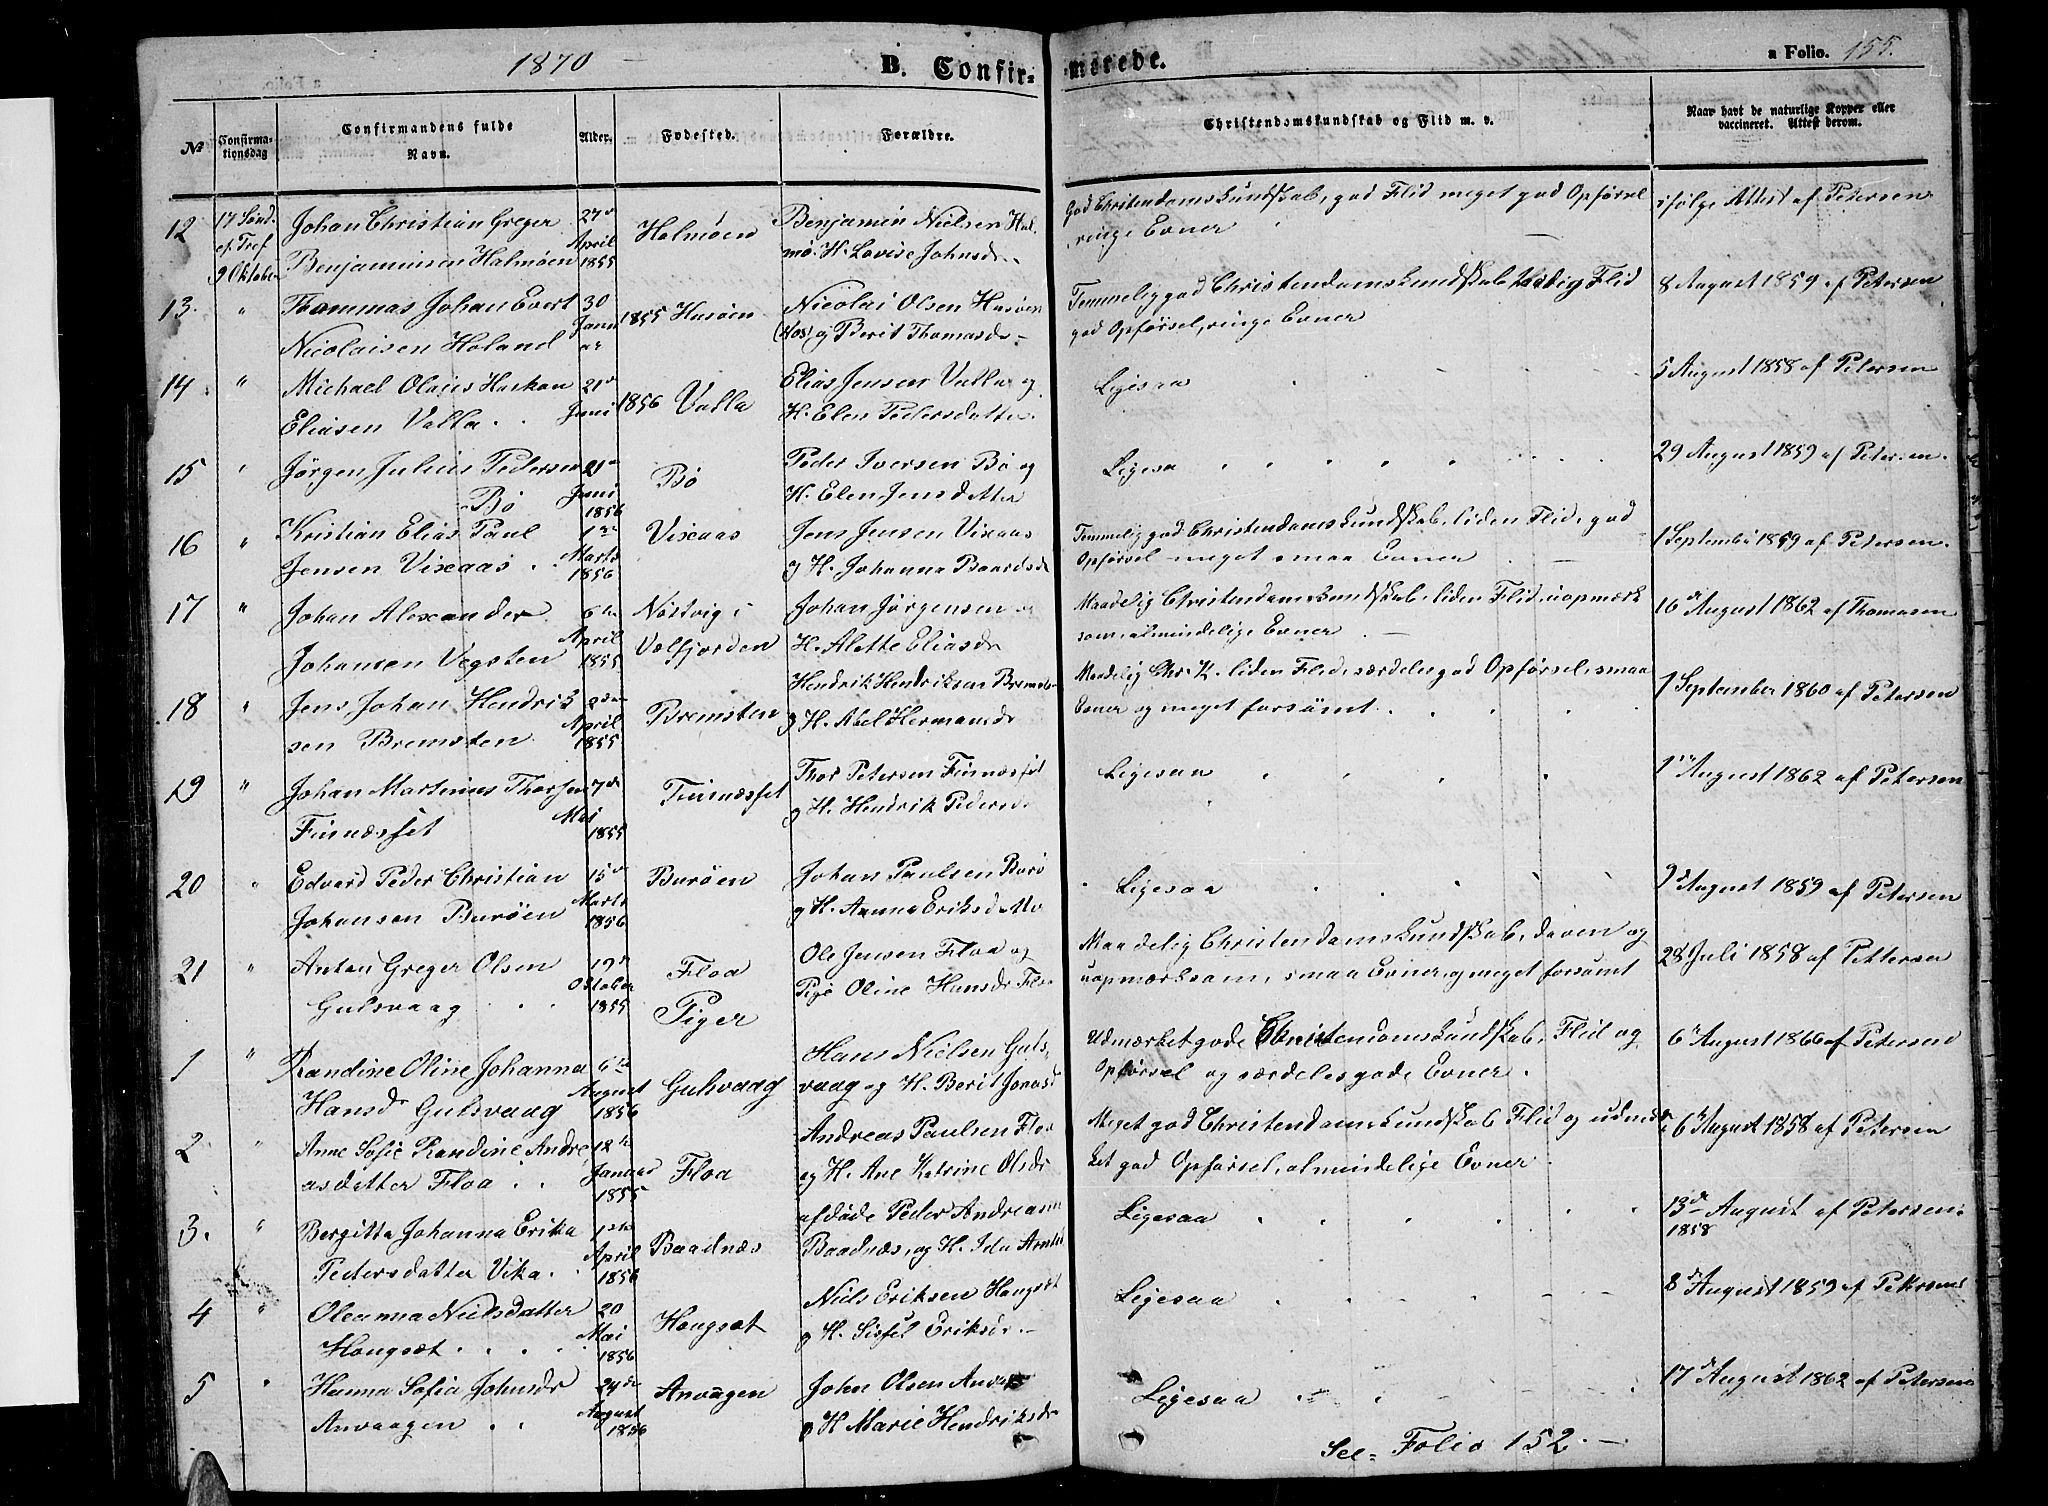 1870 — B. Confirmerede. a Folio. 155.
No | Confirmationsdag | Confirmandens fulde Navn. | Alder. | Fødested. | Forældre. | Christendomskundskab og Flid m. v. | Naar havt de naturlige Kopper eller vaccineret. Attest derom.
12 17 Sønd. Johan Christian Greger 27de Halmøen Benjamin Nielsen Hal- God Christendomskundskab, god Flid meget god Opførsel ifølge Attest af Petersen
ef. Tref April mø. H. Lovise Johnsdr. ringe Evner
9 Oktober Benjaminsen Halmøen 1855
13. " Thommas Johan Evert 30 1855 Husøen Nicolai Olsen Husøen Temmelig god Christendomskundskab Flid 8 August 1859 af Petersen
Nicolaisen Holand Januar og Berit Thomasdr — god Opførsel, ringe Evner
14. " Michael Olaus Haakon 21de 1856 Valla Elias Jensen Valla og Ligesaa 5 August 1858 af Petersen
Eliasen Valla. Juni H. Elen Pedersdatter
15 " Jørgen Julius Pedersen 21de Bø Peder Iversen Bø og Ligesa 29 August 1859 af Petersen.
Bø Juni 1856 H. Elen Jensdatter
16 " Kristian Elias Paul 1ste Vixaas Jens Jensen Vixaas Temmelig god Christendomskundskab, liden Flid, god 1 September 1859 af Petersen.
Jensen Vixaas. Marts 1856 og H. Johanna Baardsdr Opførsel — meget smaa Evner
17 " Johan Alexander 6te Nøstvig i Johan Jørgensen og Maadelig Christendomskundskab, liden Flid, uopmærk 16de August 1862 af Thomasen
Johansen Vegsten April 1855 Velfjorden H. Alette Eliasdr som, almindelige Evner —
18 " Jens Johan Hendrik 2den Bremsten Hendrik Hendriksen Bremste- Maadelig Chr. K. liden Flid, særdeles god Opførsel, smaa 1 September 1860 af Petersen
sen Bremsten April 1855 og H. Abel Hermansdr Evner og meget forsømt.
19 " Johan Martinius Thorsen 7de Finnæsset Thor Petersen Finnæsset Ligesaa 1 August 1862 af Petersen
Finnæsset Mai 1855 og H. Hendrik Peders
20 " Edvard Peder Christian 15de Burøen Johan Paulsen Burø Ligesaa 9de August 1859 af Petersen
Johansen Burøen Marts 1856 og H. Anna Eriksdatter
21 " Anton Greger Olsen 19de Floa Ole Jensen Floa og Maadelig Christendomskundskab, doven og 28 Juli 1858 af Pettersen
Gulsvaag Oktober 1855 Pige Oline Hansdr Floa uopmærksom, smaa Evner, og meget forsømt
Piger
1 " Randine Oline Johanna 6te Gulsvaag Hans Nielsen Guls- Udmærket gode Christendomskundskab, Flid og 6 August 1866 af Petersen
Hansdr Gulsvaag August 1856 vaag og H. Berit Jonasd Opførsel og særdeles gode Evner.
2 " Anne Sofie Randine Andre 12te Floa Andreas Paulsen Floa Meget god Christendomskundskab Flid og udmær 6 August 1858 af Petersen
asdatter Floa. Januar 1855 og H. Ane Katrine Olsdr ket god Opførsel, almindelige Evner.
3. " Bergitta Johanna Erika 1ste Baadnæs afdøde Peder Andreasen Ligesaa 13de August af Petersen
Pedersdatter Vika. April 1856 Baadnæs, og H. Ida 1858
4 " Oleanna Nielsdatter 20 Hougsæt Niels Eriksen Hougsæt Ligesaa 8de August 1859 af Petersen
Hougsæt. Mai 1856 og H. Sissel Eriksdr. —
5 " Hanna Sofia Johnsdr 24de Anvaagen John Olsen Ligesaa 17de August 1862 af Petersen
Anvaagen August 1856 og H. Marie Hendriksdr
See Folio 152. —